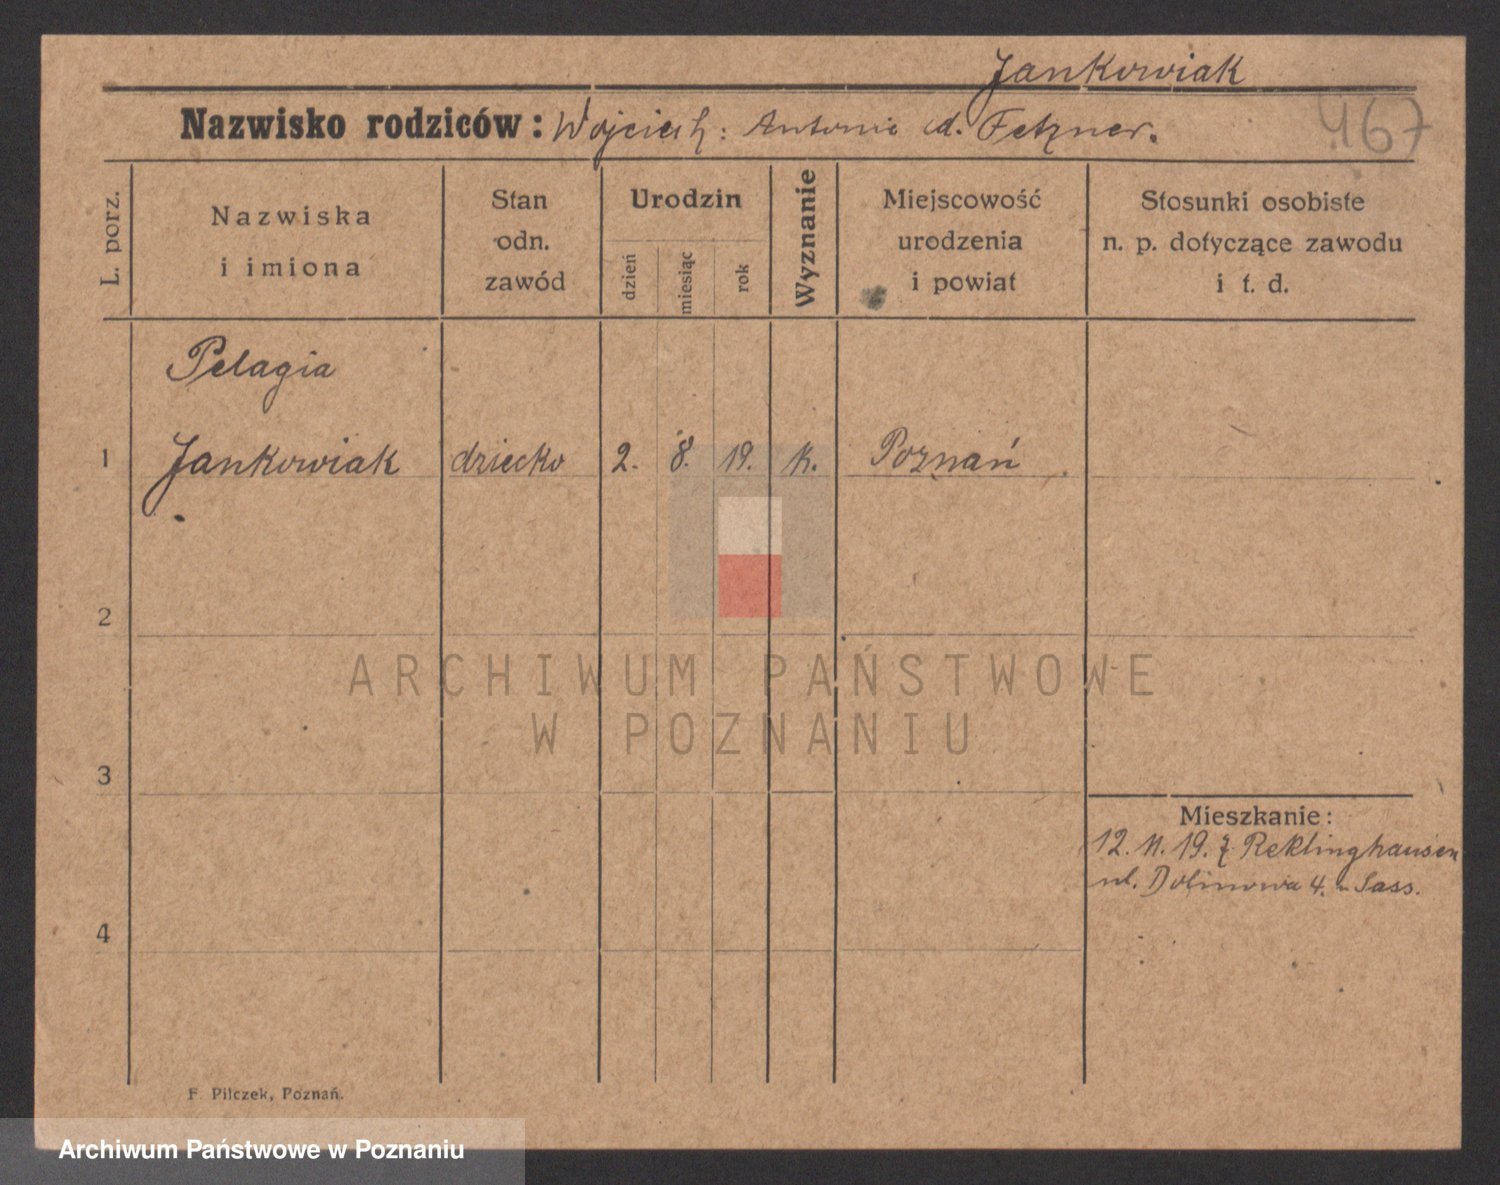 Jankowiak
Nazwisko rodziców: Wojciech: Antonie d. Fetzner.
467
L. porz.
Nazwiska
i imiona
Stan
odn.
zawód
Urodzin
dzień
miesiąc
rok
Wyznanie
Miejscowość
urodzenia
i powiat
Stosunki osobiste
n. p. dotyczące zawodu
i t. d.
Pelagia
1 Jankowiak dziecko 2. 8. 19. k. Poznań
2
ARCHIWUM PAŃSTWOWE
W POZNANIU
3
Mieszkanie:
12. 11. 19. z Reklinghausen
ul. Dolinowa 4. Sass.
4
F. Pilczek, Poznań.
Archiwum Państwowe w Poznaniu